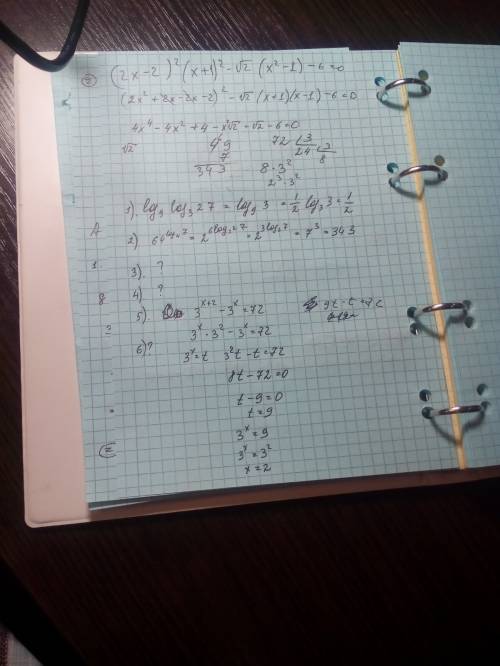 (2x-2)²(x+1)²-√2(x²-1)-6=0
(2x²+2x-2x-2)²-√2(x+1)(x-1)-6=0
4x⁴-4x²+4-x²√2-√2-6=0
√2
49
7
343
72 3
24 3
8
8·3²
2³·3²
1). log₉ log₃ 27 = log₉ 3 = 1/2 log₃ 3 = 1/2
2) = 7³ = 343
3). ?
4) ?
5) 3ˣ⁺²-3ˣ=72
3ˣ·3²-3ˣ=72
6)?
3ˣ=t 3²t-t=72
8t-72=0
t-9=0
t=9
3ˣ=9
3ˣ=3²
x=2